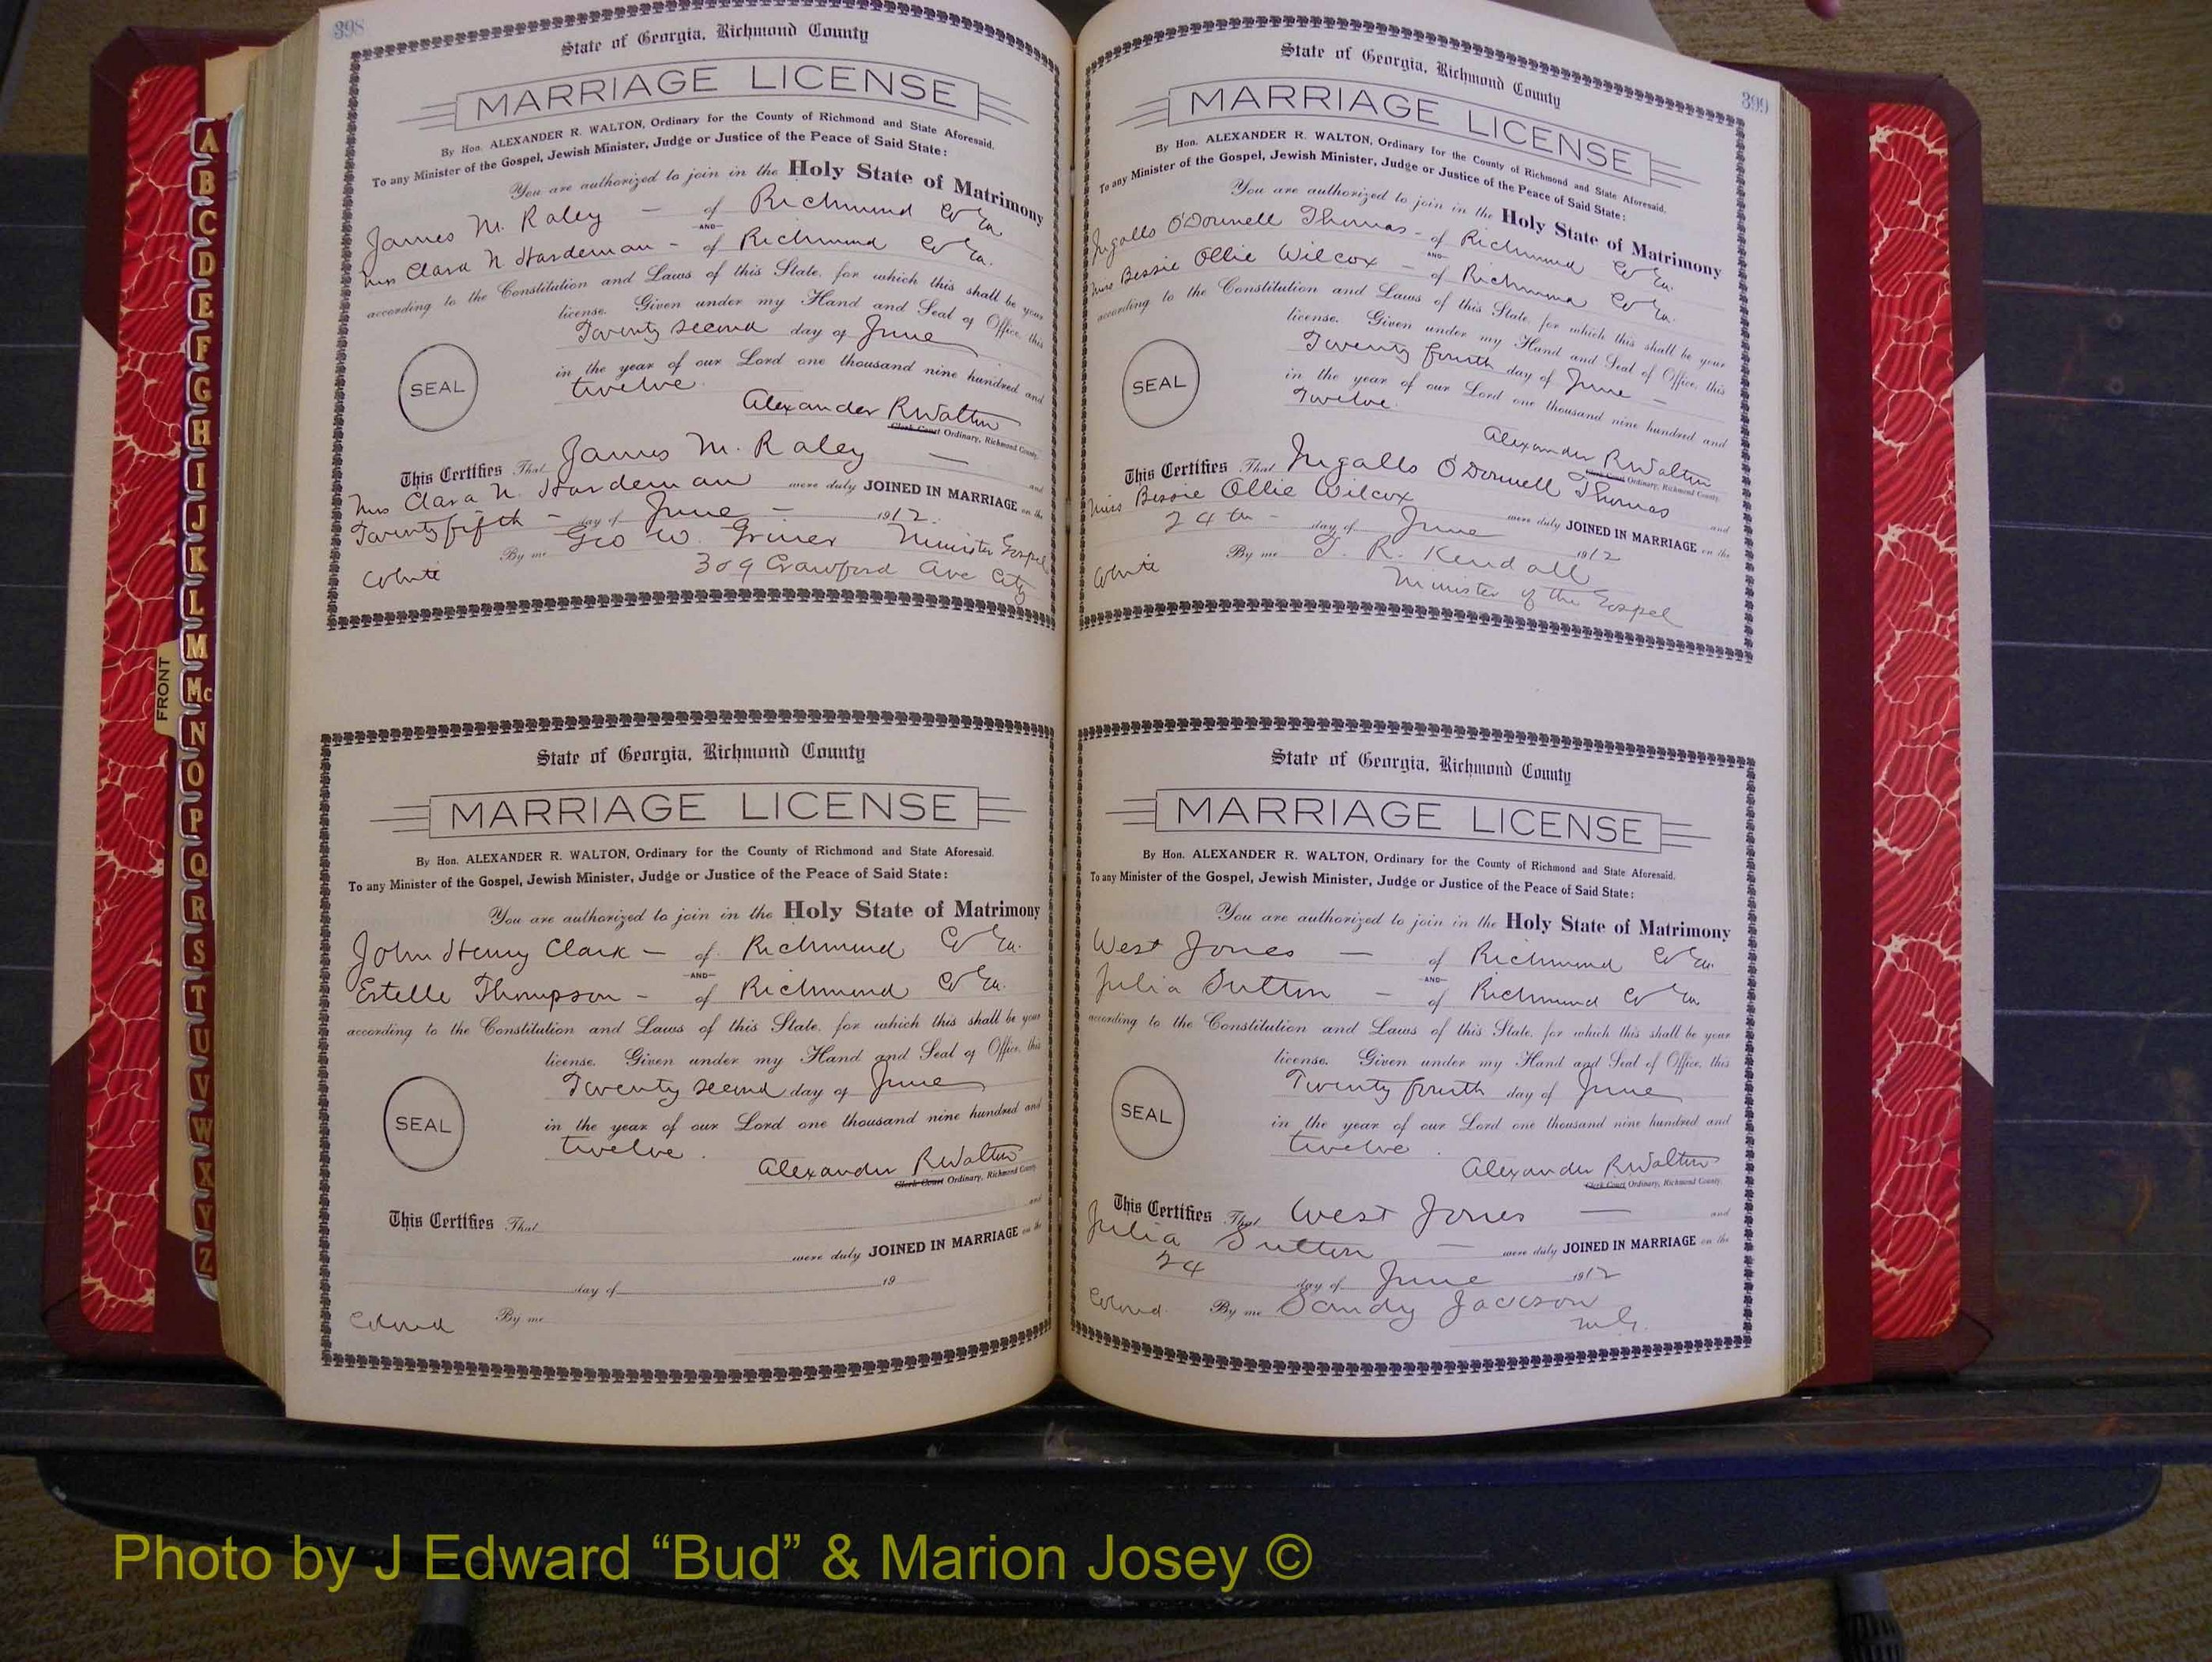 398
State of Georgia, Richmond County
MARRIAGE LICENSE
By Hon. ALEXANDER R. WALTON, Ordinary for the County of Richmond and State Aforesaid.
To any Minister of the Gospel, Jewish Minister, Judge or Justice of the Peace of Said State:
You are authorized to join in the Holy State of Matrimony
James M. Raley — of Richmond Co Ga.
AND
Miss Clara N Hardeman - of Richmond Co Ga.
according to the Constitution and Laws of this State, for which this shall be your
license. Given under my Hand and Seal of Office, this
Twenty second day of June
in the year of our Lord one thousand nine hundred and
twelve.
SEAL
Alexander R Walton
Clerk Court Ordinary, Richmond County.
This Certifies That James M. Raley — and
Miss Clara N. Hardeman were duly JOINED IN MARRIAGE on the
Twenty fifth - day of June - 1912.
By me Geo W. Griner Minister Gospel
White 309 Crawford Ave City
State of Georgia, Richmond County
MARRIAGE LICENSE
By Hon. ALEXANDER R. WALTON, Ordinary for the County of Richmond and State Aforesaid.
To any Minister of the Gospel, Jewish Minister, Judge or Justice of the Peace of Said State:
You are authorized to join in the Holy State of Matrimony
John Henry Clark — of Richmond Co Ga.
AND
Estelle Thompson - of Richmond Co Ga.
according to the Constitution and Laws of this State, for which this shall be your
license. Given under my Hand and Seal of Office, this
Twenty second day of June
in the year of our Lord one thousand nine hundred and
twelve.
SEAL
Alexander R Walton
Clerk Court Ordinary, Richmond County
This Certifies That and
were duly JOINED IN MARRIAGE on the
day of 19
Colored By me
399
State of Georgia, Richmond County
MARRIAGE LICENSE
By Hon. ALEXANDER R. WALTON, Ordinary for the County of Richmond and State Aforesaid.
To any Minister of the Gospel, Jewish Minister, Judge or Justice of the Peace of Said State:
You are authorized to join in the Holy State of Matrimony
Ingalls O'Donnell Thomas - of Richmond Co Ga.
AND
Miss Bessie Ollie Wilcox — of Richmond Co Ga.
according to the Constitution and Laws of this State, for which this shall be your
license. Given under my Hand and Seal of Office, this
Twenty fourth day of June —
in the year of our Lord one thousand nine hundred and
Twelve.
SEAL
Alexander R Walton
Clerk Court Ordinary, Richmond County
This Certifies That Ingalls O'Donnell Thomas and
Miss Bessie Ollie Wilcox were duly JOINED IN MARRIAGE on the
24th - day of June 1912
White By me T. R. Kendall
Minister of the Gospel
State of Georgia, Richmond County
MARRIAGE LICENSE
By Hon. ALEXANDER R. WALTON, Ordinary for the County of Richmond and State Aforesaid.
To any Minister of the Gospel, Jewish Minister, Judge or Justice of the Peace of Said State:
You are authorized to join in the Holy State of Matrimony
West Jones — of Richmond Co Ga.
AND
Julia Sutton — of Richmond Co Ga
according to the Constitution and Laws of this State, for which this shall be your
license. Given under my Hand and Seal of Office, this
Twenty fourth day of June
in the year of our Lord one thousand nine hundred and
twelve.
SEAL
Alexander R Walton
Clerk Court Ordinary, Richmond County.
This Certifies That West Jones — and
Julia Sutton — were duly JOINED IN MARRIAGE on the
24 day of June 1912
Colored. By me Sandy Jackson
M.G.
FRONT
A
B
C
D
E
F
G
H
I
J
K
L
M
Mc
N
O
P
Q
R
S
T
U
V
W
X
Y
Z
Photo by J Edward “Bud” & Marion Josey ©